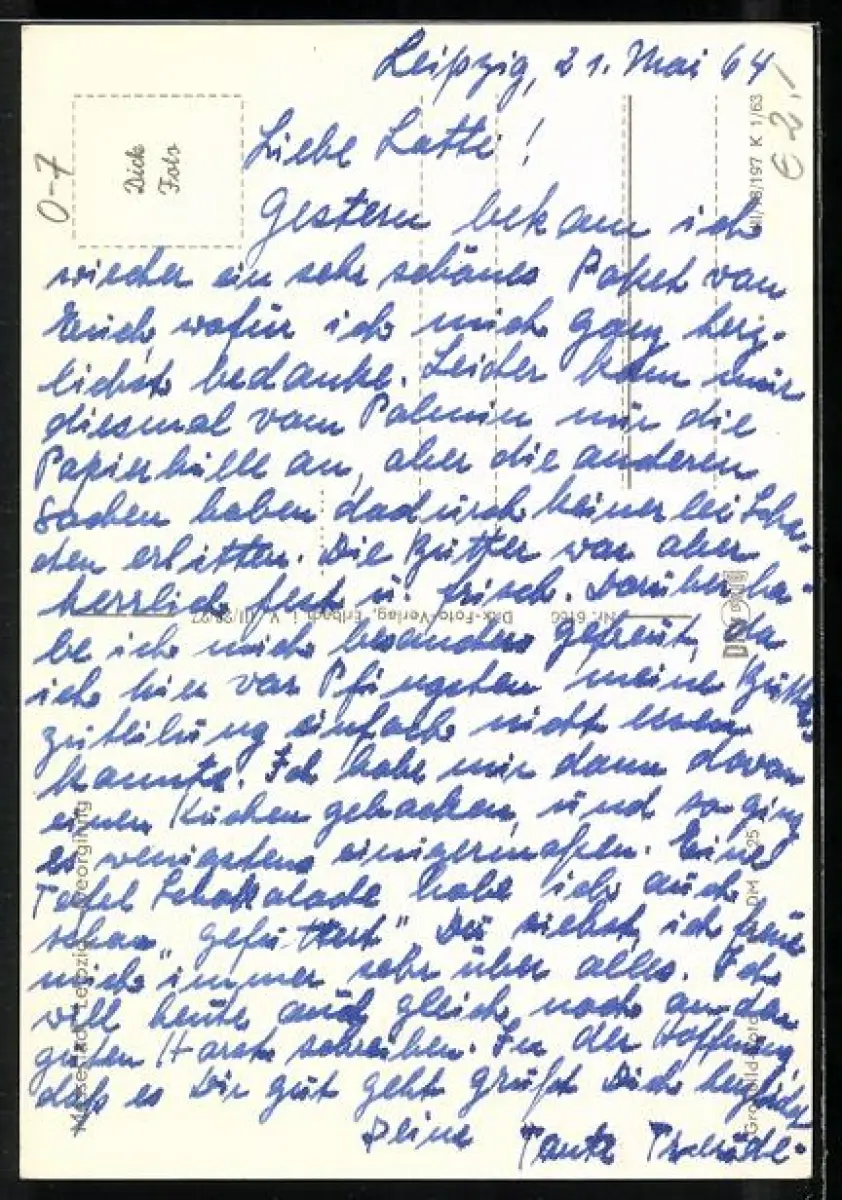 Leipzig, 21. Mai 64
€ 2,-
0-7
Dick
Foto
III/18/197 K 1/63
Liebe Lotti!
Gestern bekam ich
wieder ein sehr schönes Paket von
Euch, wofür ich mich ganz herz-
lichst bedanke. Leider kam mir
diesmal vom Palmin nur die
Papierhülle an, aber die anderen
Sachen haben dadurch keinerlei Scha-
den erlitten. Die Butter war aber
herrlich fest u. frisch. Darüber ha-
be ich mich besonders gefreut, da
ich hier vor Pfingsten meine Butter
zuteilung einfach nicht essen
konnte. Ich habe mir dann davon
einen Kuchen gebacken, und so ging
es wenigstens einigermaßen. Eine
Tafel Schokolade habe ich auch
schon „gefuttert". Du siehst, ich freue
mich immer sehr über alles. Ich
will heute auch gleich noch an den
guten Horst schreiben. In der Hoffnung,
daß es Dir gut geht grüßt Dich herzlichst
Deine Tante
Dick-Foto-Verlag, Erlbach i. V.
Nr. 6166
Messestadt Leipzig
Georgiring
DM 25